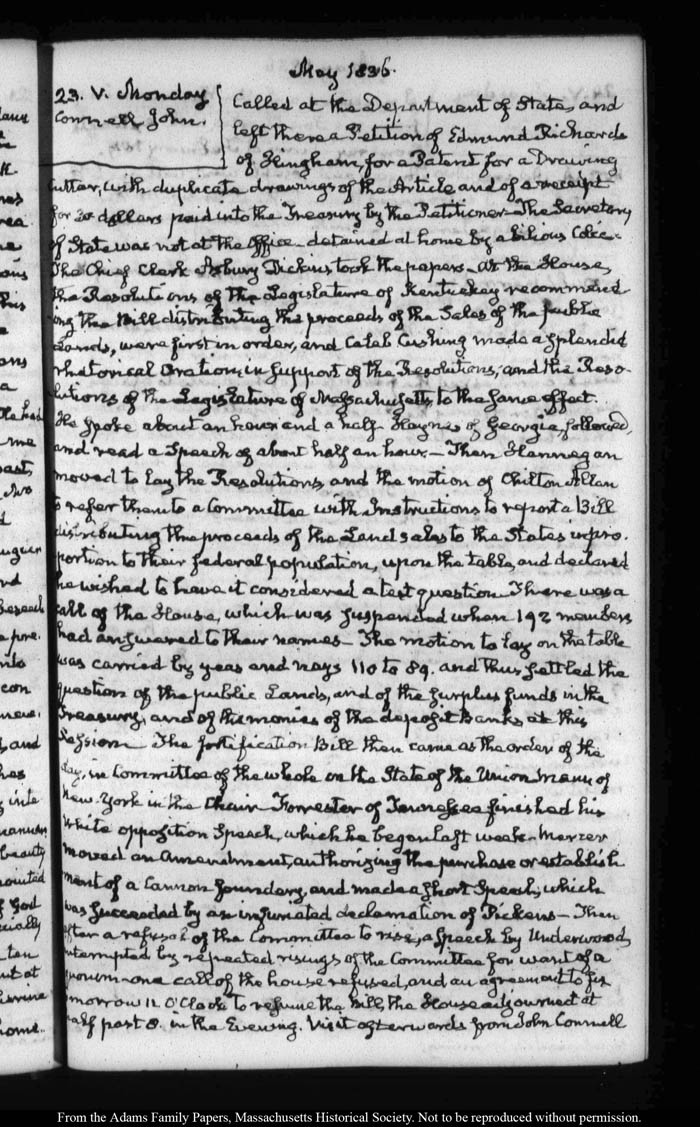 May 1836.
23. V. Monday
Connell John.
Called at the Department of State, and
left there a Petition of Edmund Richards
of Hingham, for a Patent for a Drawing
Cutter, with duplicate drawings of the Article and of a receipt
for 30 dollars paid into the Treasury by the Petitioner - The Secretary
of State was not at the Office - detained at home by a bilious Colic -
The Chief Clerk Asbury Dickins took the papers - At the House,
the Resolutions of the Legislature of Kentuckey recommend
ing the Bill distributing the proceeds of the Sales of the public
Lands, were first in order, and Caleb Cushing made a splendid
rhetorical Oration, in support of the Resolutions, and the Reso-
lutions of the Legislature of Massachusetts, to the same effect.
He spoke about an hour and a half - Haynes of Georgia, followed,
and read a Speech of about half an hour - Then Hannegan
moved to lay the Resolutions, and the motion of Chilton Allan
to refer them to a Committee with Instructions to report a Bill
distributing the proceeds of the Land sales to the States in pro-
portion to their federal population, upon the table, and declared
he wished to have it considered a test question - There was a
call of the House, which was suspended when 192 members
had answered to their names - The motion to lay on the table
was carried by yeas and nays 110 to 89. and thus settled the
question of the public Lands, and of the surplus funds in the
Treasury, and of the monies of the deposit Banks, at this
Session - The fortification Bill then came as the order of the
day, in Committee of the whole on the State of the Union Mann of
New-York in the Chair Forrester of Tennessee finished his
White opposition Speech, which he began last week - Mercer
moved an Amendment, authorizing the purchase or establish
ment of a Cannon foundery, and made a short Speech; which
was succeeded by an infuriated declamation of Pickens - Then
after a refusal of the Committee to rise, a Speech by Underwood,
interrupted by repeated risings of the Committee for want of a
quorum - one call of the house refused, and an agreement to fix
tomorrow 11 O'Clock to resume the Bill, the House adjourned at
half past 8. in the Evening. Visit afterwards from John Connell
From the Adams Family Papers, Massachusetts Historical Society. Not to be reproduced without permission.